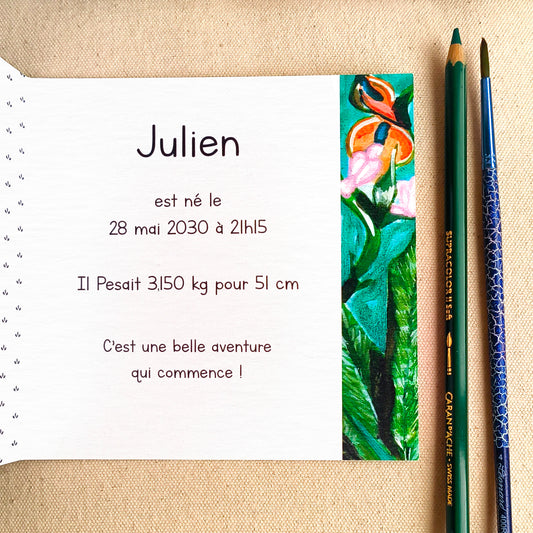 Julien
est né le
28 mai 2030 à 21h15
Il Pesait 3,150 kg pour 51 cm
C'est une belle aventure
qui commence !
SUPRACOLOR II SOFT
CARAN D'ACHE - SWISS MADE